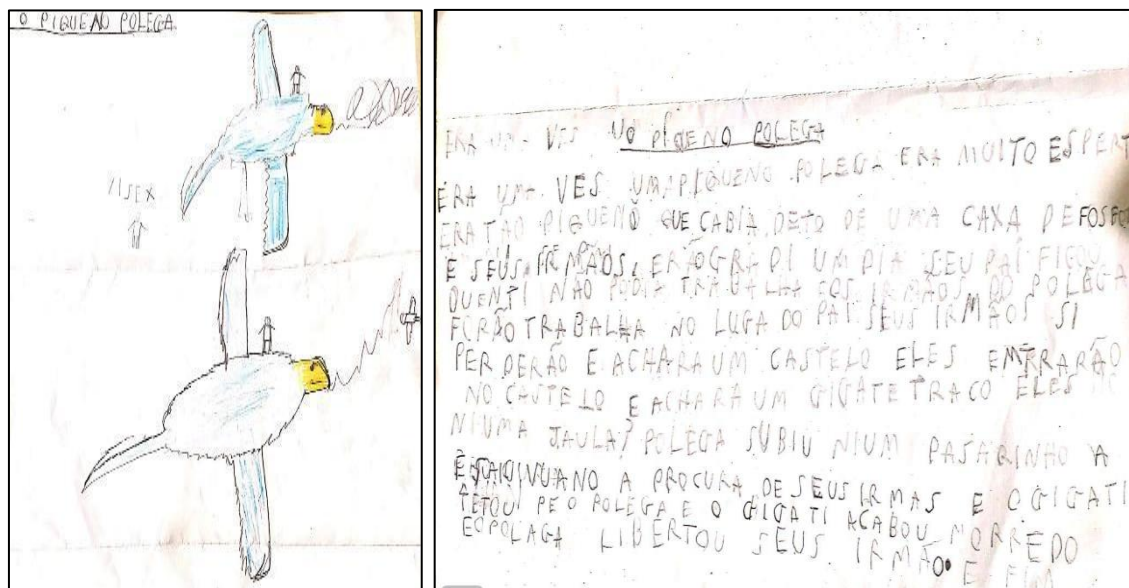 O PIQUENO POLEGA
ERA UM VES UO PIQENO POLEGA
ERA UMA VES UMA PIQUENO POLEGA ERA MUITO ESPERT
ERA TÃO PIQUENO QUE CABIA DETO DE UMA CAXA DE FOSFO
E SEUS IRMÃOS ERÃO GRADI UM DIA SEU PAI FICOU
DUENTI NÃO PODIA TRABALHA E OS IRMÃOS DO POLEGA
FORÃO TRABALHA NO LUGA DO PAI SEUS IRMÃOS SI
PERDERÃO E ACHARA UM CASTELO ELES EMTRARÃO
NO CASTELO E ACHARÃ UM GIGATE TRACO ELES
NIUMA JAULA POLEGA SUBIU NIUM PASARINHO A
VUANO A PROCURA DE SEUS IRMAS E O GIGATI
PE O POLEGA E O GIGATI ACABOU MORREDO
EO POLAGA LIBERTOU SEUS IRMÃO. E FIM